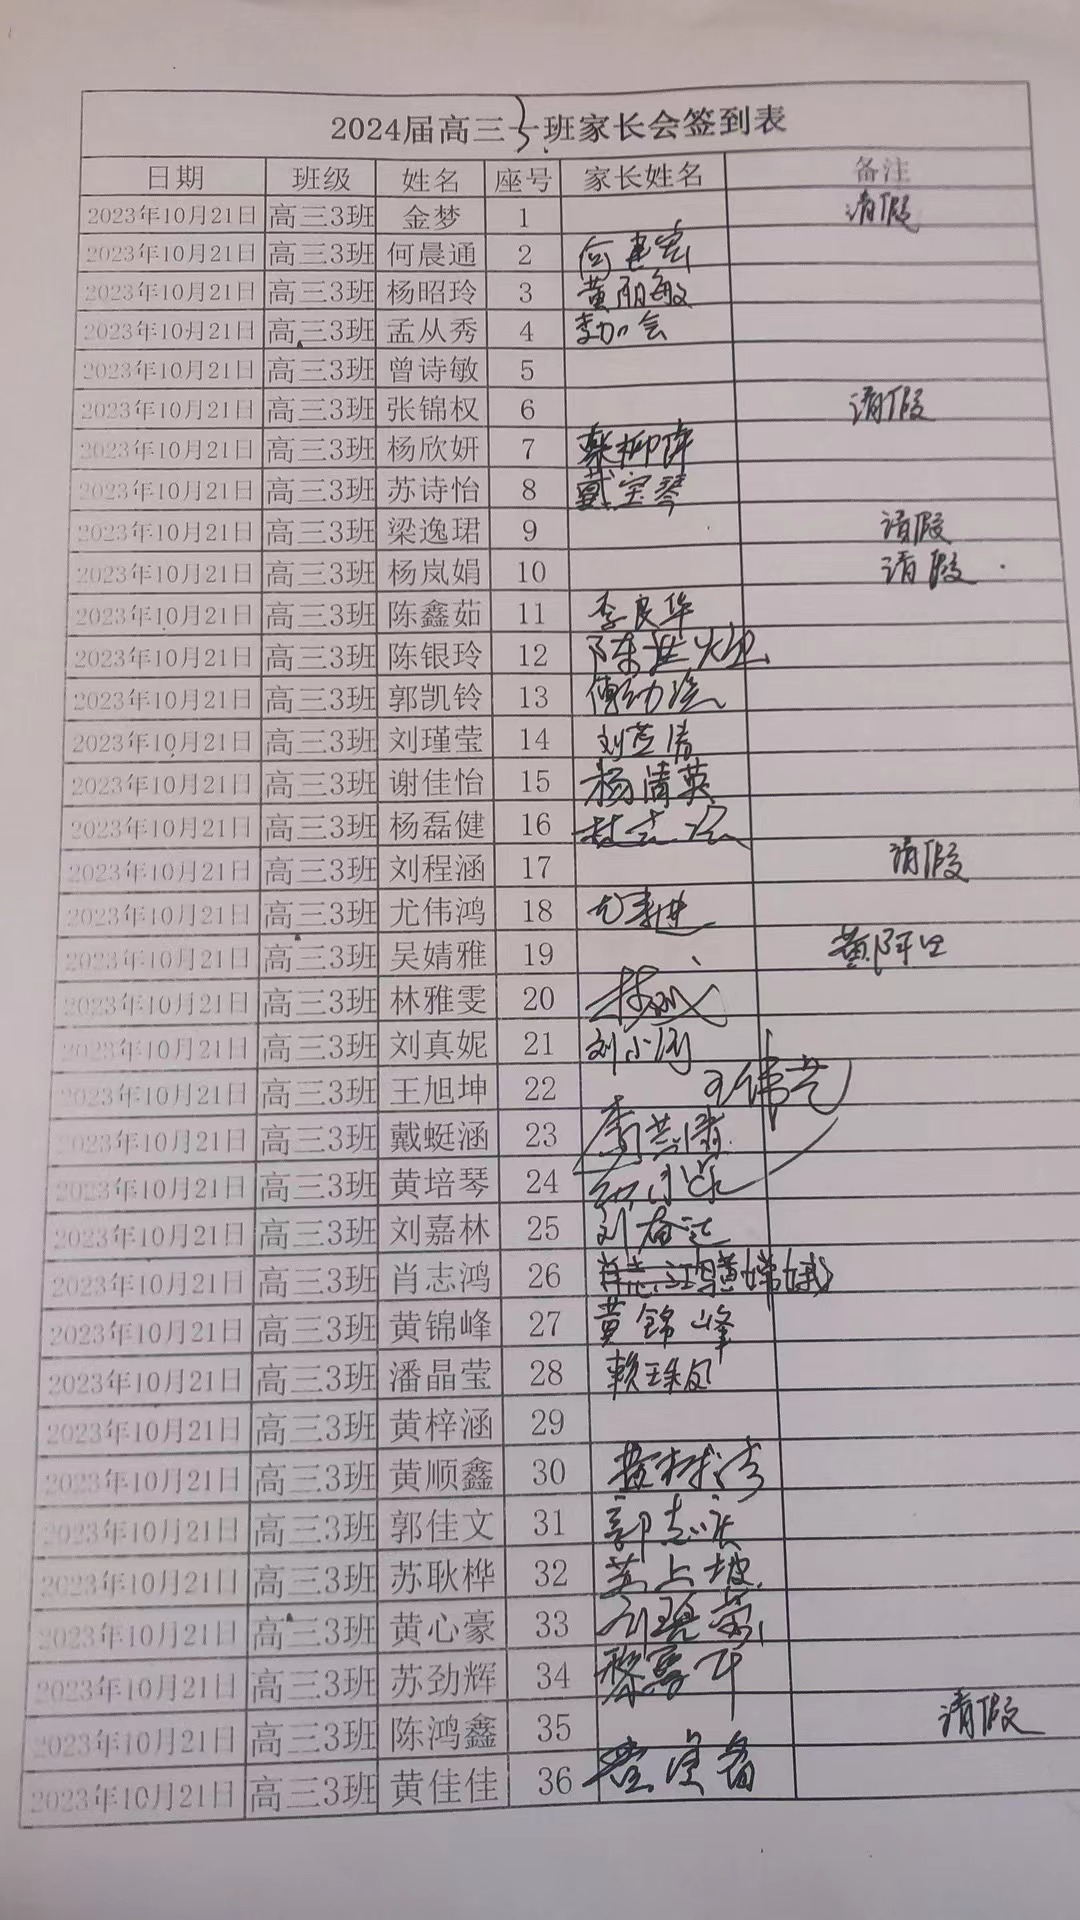 2024届高三3班家长会签到表
日期 班级 姓名 座号 家长姓名 备注
2023年10月21日 高三3班 金梦 1 请假
2023年10月21日 高三3班 何晨通 2
2023年10月21日 高三3班 杨昭玲 3 黄丽敏
2023年10月21日 高三3班 孟从秀 4 李加会
2023年10月21日 高三3班 曾诗敏 5
2023年10月21日 高三3班 张锦权 6 请假
2023年10月21日 高三3班 杨欣妍 7
2023年10月21日 高三3班 苏诗怡 8 戴宝琴
2023年10月21日 高三3班 梁逸珺 9 请假
2023年10月21日 高三3班 杨岚娟 10 请假
2023年10月21日 高三3班 陈鑫茹 11 李良华
2023年10月21日 高三3班 陈银玲 12
2023年10月21日 高三3班 郭凯铃 13
2023年10月21日 高三3班 刘瑾莹 14
2023年10月21日 高三3班 谢佳怡 15 杨清英
2023年10月21日 高三3班 杨磊健 16
2023年10月21日 高三3班 刘程涵 17 请假
2023年10月21日 高三3班 尤伟鸿 18
2023年10月21日 高三3班 吴婧雅 19
2023年10月21日 高三3班 林雅雯 20
2023年10月21日 高三3班 刘真妮 21
2023年10月21日 高三3班 王旭坤 22 王伟艺
2023年10月21日 高三3班 戴蜓涵 23
2023年10月21日 高三3班 黄培琴 24
2023年10月21日 高三3班 刘嘉林 25
2023年10月21日 高三3班 肖志鸿 26 黄嫦娥
2023年10月21日 高三3班 黄锦峰 27 黄锦峰
2023年10月21日 高三3班 潘晶莹 28 赖珠凤
2023年10月21日 高三3班 黄梓涵 29
2023年10月21日 高三3班 黄顺鑫 30
2023年10月21日 高三3班 郭佳文 31
2023年10月21日 高三3班 苏耿桦 32
2023年10月21日 高三3班 黄心豪 33
2023年10月21日 高三3班 苏劲辉 34
2023年10月21日 高三3班 陈鸿鑫 35 请假
2023年10月21日 高三3班 黄佳佳 36